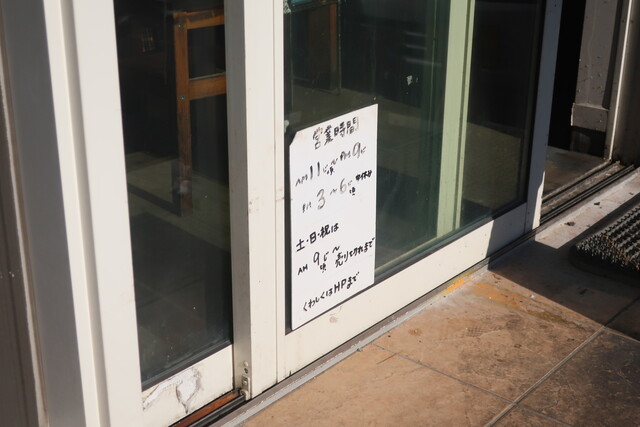 営業時間
AM11じ〜PM9じ
PM3〜6じは中休み
土・日・祝は
AM9じ〜売りきれまで
くわしくはHPまで